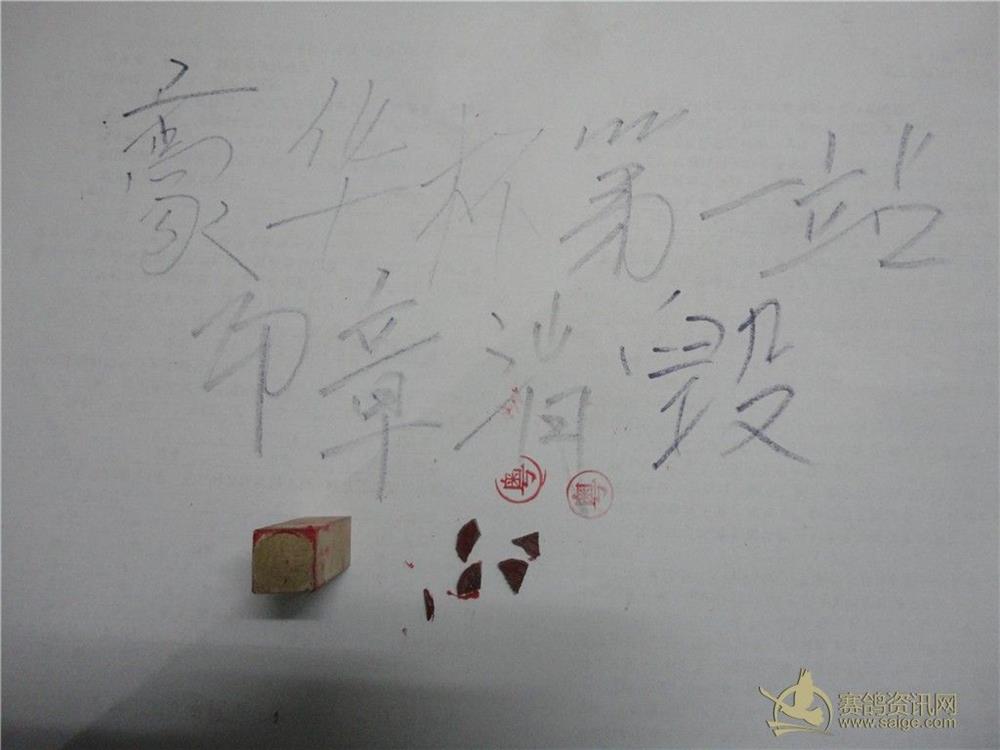 豪华杯第一站
印章消毁
粤 粤
赛鸽资讯网
www.saigc.com